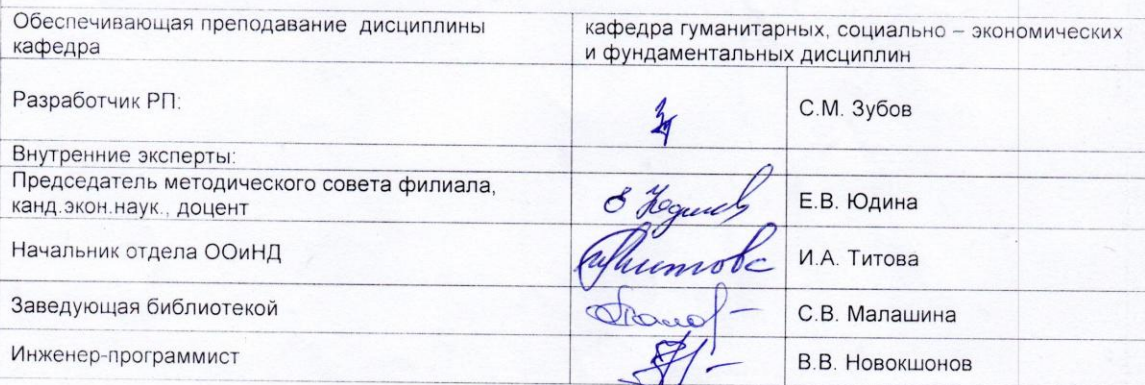 Обеспечивающая преподавание дисциплины
кафедра
кафедра гуманитарных, социально – экономических
и фундаментальных дисциплин
Разработчик РП:
С.М. Зубов
Внутренние эксперты:
Председатель методического совета филиала,
канд.экон.наук., доцент
Е.В. Юдина
Начальник отдела ООиНД
И.А. Титова
Заведующая библиотекой
С.В. Малашина
Инженер-программист
В.В. Новокшонов